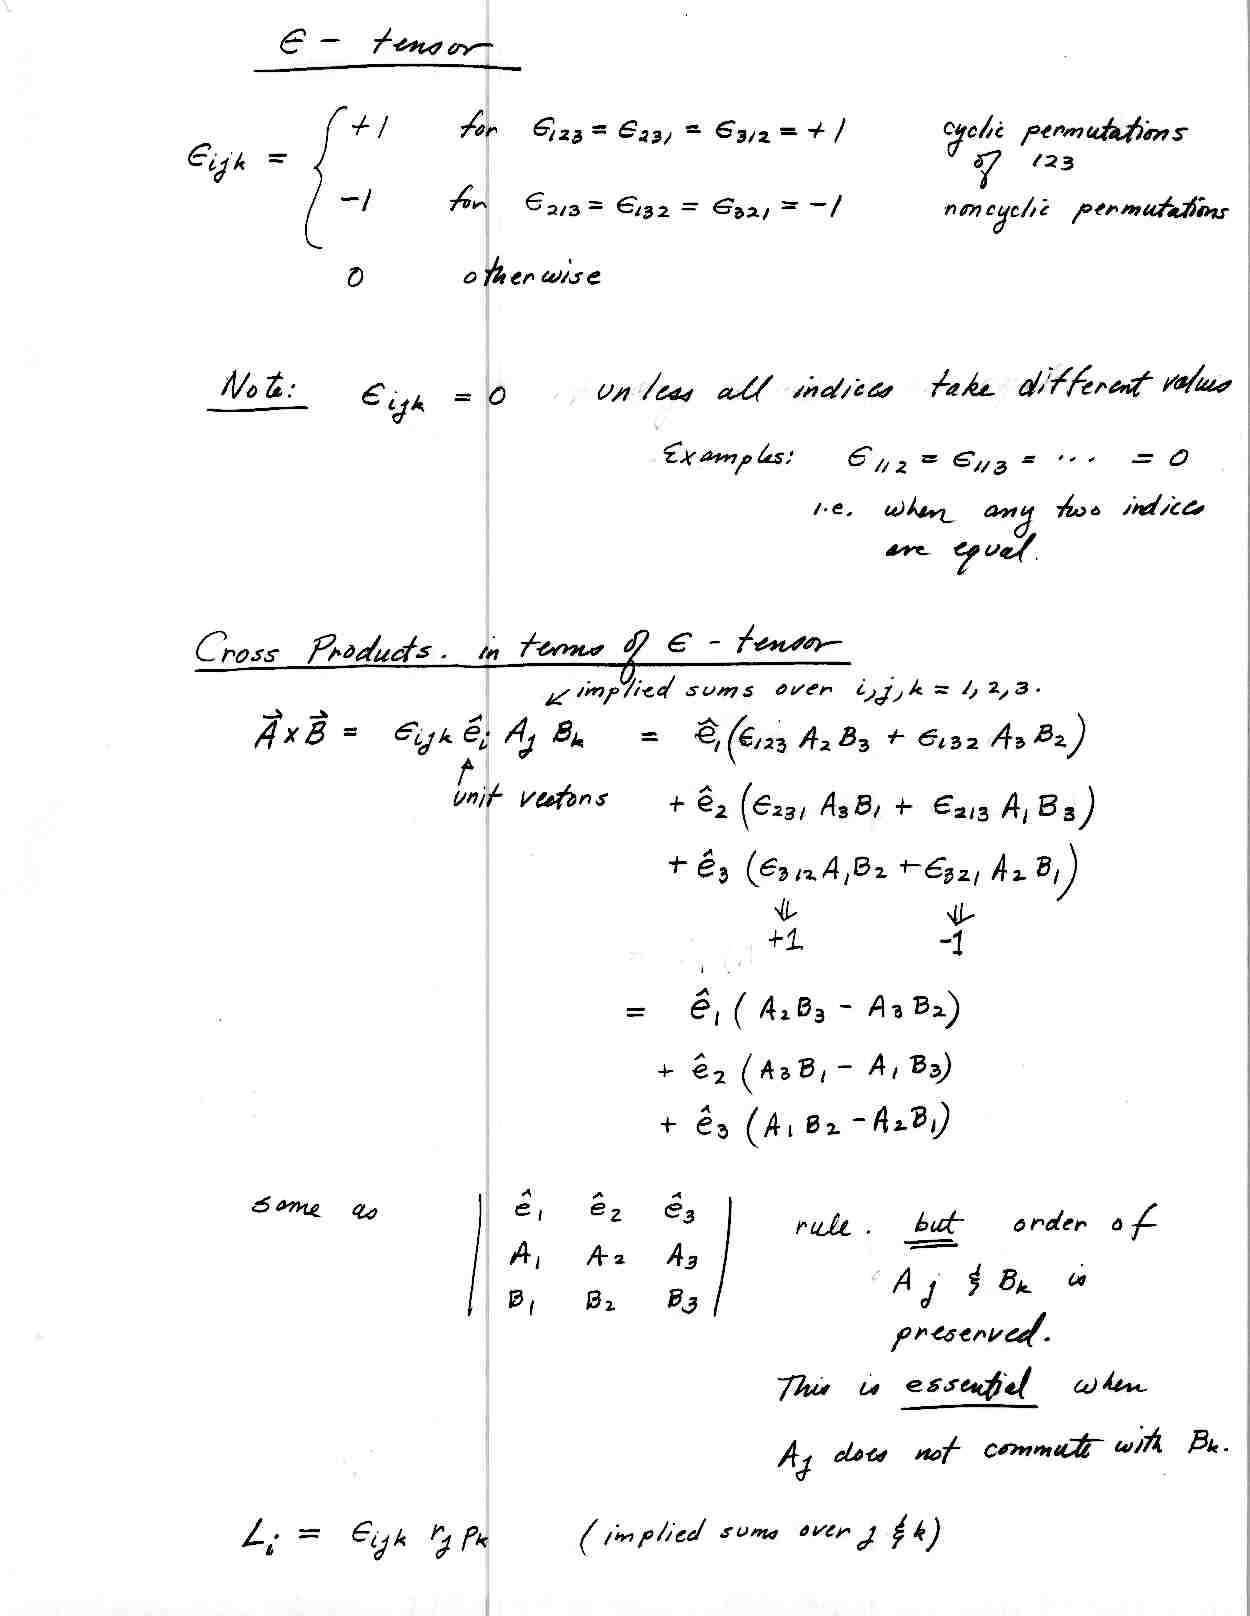 ϵ - tensor
ϵijk = { +1 for ϵ123 = ϵ231 = ϵ312 = +1 cyclic permutations
of 123
-1 for ϵ213 = ϵ132 = ϵ321 = -1 noncyclic permutations
0 otherwise
Note: ϵijk = 0 unless all indices take different values
Examples: ϵ112 = ϵ113 = ... = 0
i.e. when any two indices
are equal.
Cross Products. in terms of ϵ - tensor
↙ implied sums over i,j,k = 1,2,3.
A⃗ x B⃗ = ϵijk êi Aj Bk = ê1(ϵ123 A2 B3 + ϵ132 A3 B2)
↑
unit vectors + ê2 (ϵ231 A3 B1 + ϵ213 A1 B3)
+ ê3 (ϵ312 A1 B2 + ϵ321 A2 B1)
⇓ ⇓
+1 -1
= ê1 ( A2 B3 - A3 B2)
+ ê2 ( A3 B1 - A1 B3)
+ ê3 (A1 B2 - A2 B1)
same as | ê1 ê2 ê3 | rule. but order of
| A1 A2 A3 | Aj & Bk is
| B1 B2 B3 |
preserved.
This is essential when
Aj does not commute with Bk.
Li = ϵijk rj pk (implied sums over j & k)